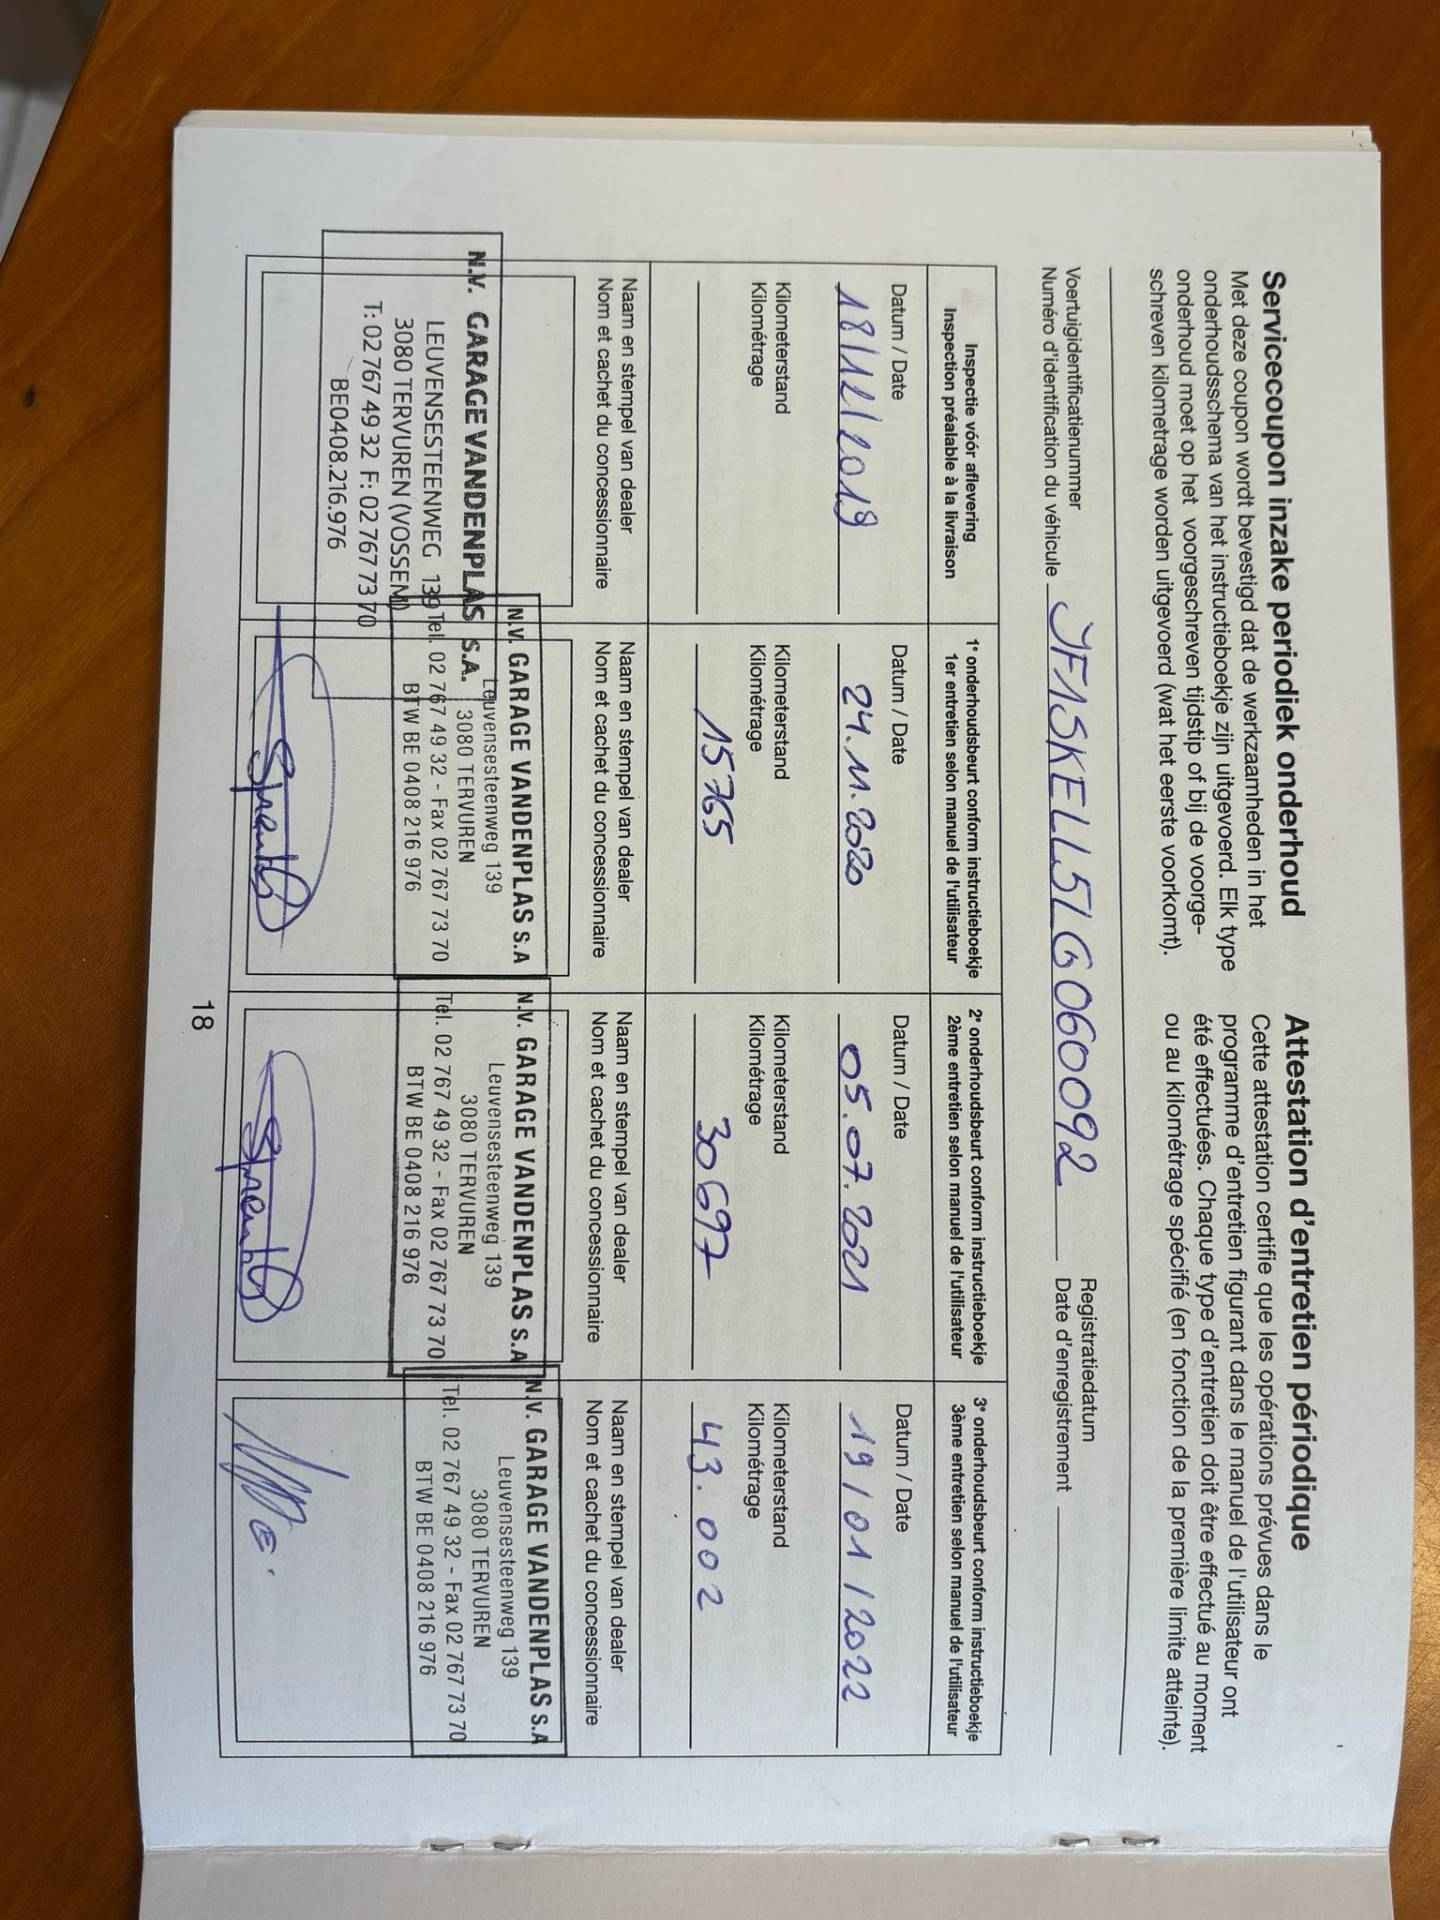 Servicecoupon inzake periodiek onderhoud
Met deze coupon wordt bevestigd dat de werkzaamheden in het
onderhoudsschema van het instructieboekje zijn uitgevoerd. Elk type
onderhoud moet op het voorgeschreven tijdstip of bij de voorge-
schreven kilometrage worden uitgevoerd (wat het eerste voorkomt).
Attestation d'entretien périodique
Cette attestation certifie que les opérations prévues dans le
programme d'entretien figurant dans le manuel de l'utilisateur ont
été effectuées. Chaque type d'entretien doit être effectué au moment
ou au kilométrage spécifié (en fonction de la première limite atteinte).
Voertuigidentificatienummer
Numéro d'identification du véhicule JF1SKELL5LG060092
Registratiedatum
Date d'enregistrement
Inspectie vóór aflevering
Inspection préalable à la livraison
Datum / Date
18/12/2019
Kilometerstand
Kilométrage
Naam en stempel van dealer
Nom et cachet du concessionnaire
N.V. GARAGE VANDENPLAS S.A.
LEUVENSESTEENWEG 139
3080 TERVUREN (VOSSEM)
T: 02 767 49 32 F: 02 767 73 70
BE0408.216.976
1e onderhoudsbeurt conform instructieboekje
1er entretien selon manuel de l'utilisateur
Datum / Date
24.11.2020
Kilometerstand
Kilométrage
15765
Naam en stempel van dealer
Nom et cachet du concessionnaire
N.V. GARAGE VANDENPLAS S.A
Leuvensesteenweg 139
3080 TERVUREN
Tel. 02 767 49 32 - Fax 02 767 73 70
BTW BE 0408 216 976
2e onderhoudsbeurt conform instructieboekje
2ème entretien selon manuel de l'utilisateur
Datum / Date
05.07.2021
Kilometerstand
Kilométrage
30697
Naam en stempel van dealer
Nom et cachet du concessionnaire
N.V. GARAGE VANDENPLAS S.A
Leuvensesteenweg 139
3080 TERVUREN
Tel. 02 767 49 32 - Fax 02 767 73 70
BTW BE 0408 216 976
3e onderhoudsbeurt conform instructieboekje
3ème entretien selon manuel de l'utilisateur
Datum / Date
19/01/2022
Kilometerstand
Kilométrage
43.002
Naam en stempel van dealer
Nom et cachet du concessionnaire
N.V. GARAGE VANDENPLAS S.A
Leuvensesteenweg 139
3080 TERVUREN
Tel. 02 767 49 32 - Fax 02 767 73 70
BTW BE 0408 216 976
18